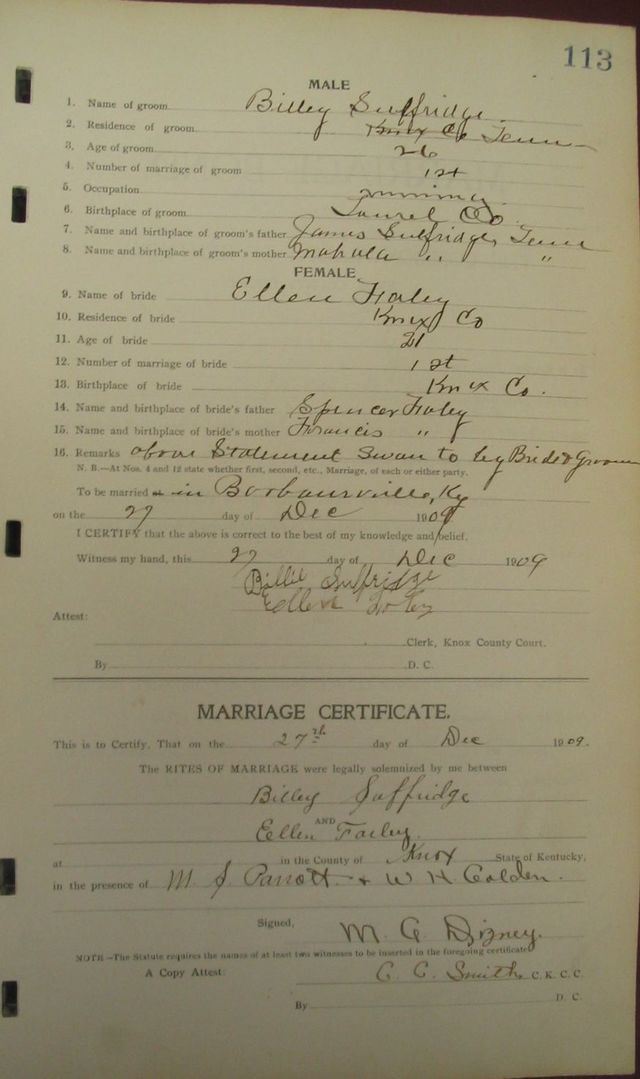 113
MALE
1. Name of groom Billey Suffridge
2. Residence of groom Knox Co Tenn
3. Age of groom 26
4. Number of marriage of groom 1st
5. Occupation mining
6. Birthplace of groom Laurel Co
7. Name and birthplace of groom's father James Suffridge, Tenn
8. Name and birthplace of groom's mother Mahala " "
FEMALE
9. Name of bride Ellen Farley
10. Residence of bride Knox Co
11. Age of bride 21
12. Number of marriage of bride 1st
13. Birthplace of bride Knox Co.
14. Name and birthplace of bride's father Spencer Farley
15. Name and birthplace of bride's mother Francis "
16. Remarks above Statement Swan to by Bride & Groom
N. B.—At Nos. 4 and 12 state whether first, second, etc., Marriage, of each or either party.
To be married in Barboursville, Ky
on the 27 day of Dec 1909
I CERTIFY that the above is correct to the best of my knowledge and belief.
Witness my hand, this 27 day of Dec 1909
Billie Suffridge
Ellen Farley
Attest:
Clerk, Knox County Court.
By D. C.
MARRIAGE CERTIFICATE.
This is to Certify, That on the 27th day of Dec 1909.
The RITES OF MARRIAGE were legally solemnized by me between
Billey Suffridge
AND
Eellen Farley
at in the County of Knox State of Kentucky,
in the presence of M. J. Parrott & W H Golden.
Signed, M. G. Dizney.
NOTE—The Statute requires the names of at least two witnesses to be inserted in the foregoing certificate
A Copy Attest: C. C. Smith, C. K. C. C.
By D. C.